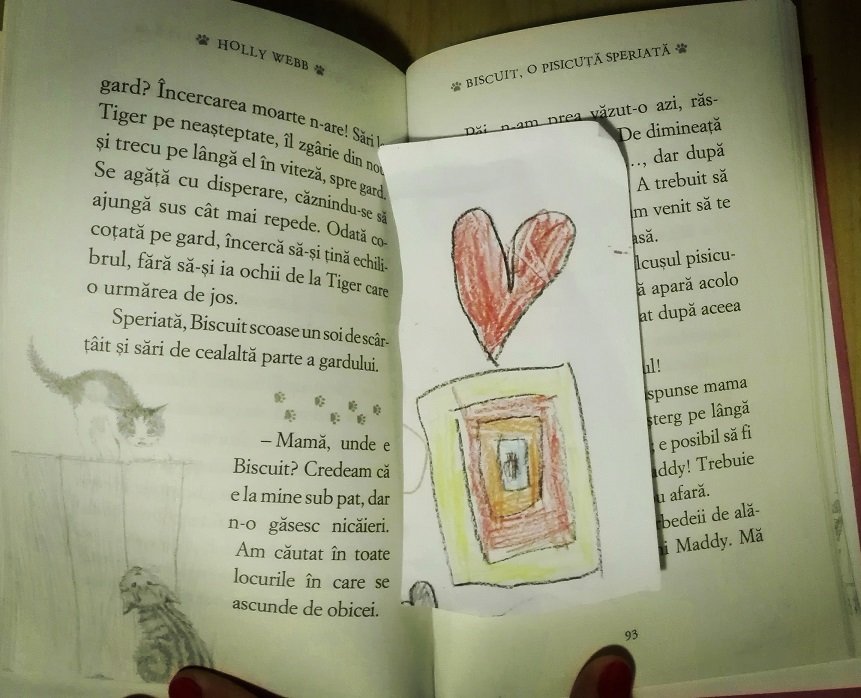 HOLLY WEBB
gard? Încercarea moarte n-are! Sări
Tiger pe neașteptate, îl zgârie din nou
și trecu pe lângă el în viteză, spre gard.
Se agăță cu disperare, căznindu-se să
ajungă sus cât mai repede. Odată co-
coțată pe gard, încercă să-și țină echili-
brul, fără să-și ia ochii de la Tiger care
o urmărea de jos.
Speriată, Biscuit scoase un soi de scâr-
țâit și sări de cealaltă parte a gardului.
– Mamă, unde e
Biscuit? Credeam că
e la mine sub pat, dar
n-o găsesc nicăieri.
Am căutat în toate
locurile în care se
ascunde de obicei.
BISCUIT, O PISICUȚĂ SPERIATĂ
Păi, n-am prea văzut-o azi, răs-
De dimineață
..., dar după
A trebuit să
venit să te
pisicu-
apară acolo
după aceea
spunse mama
pe lângă
e posibil să fi
Trebuie
afară.
de ală-
Maddy. Mă
93